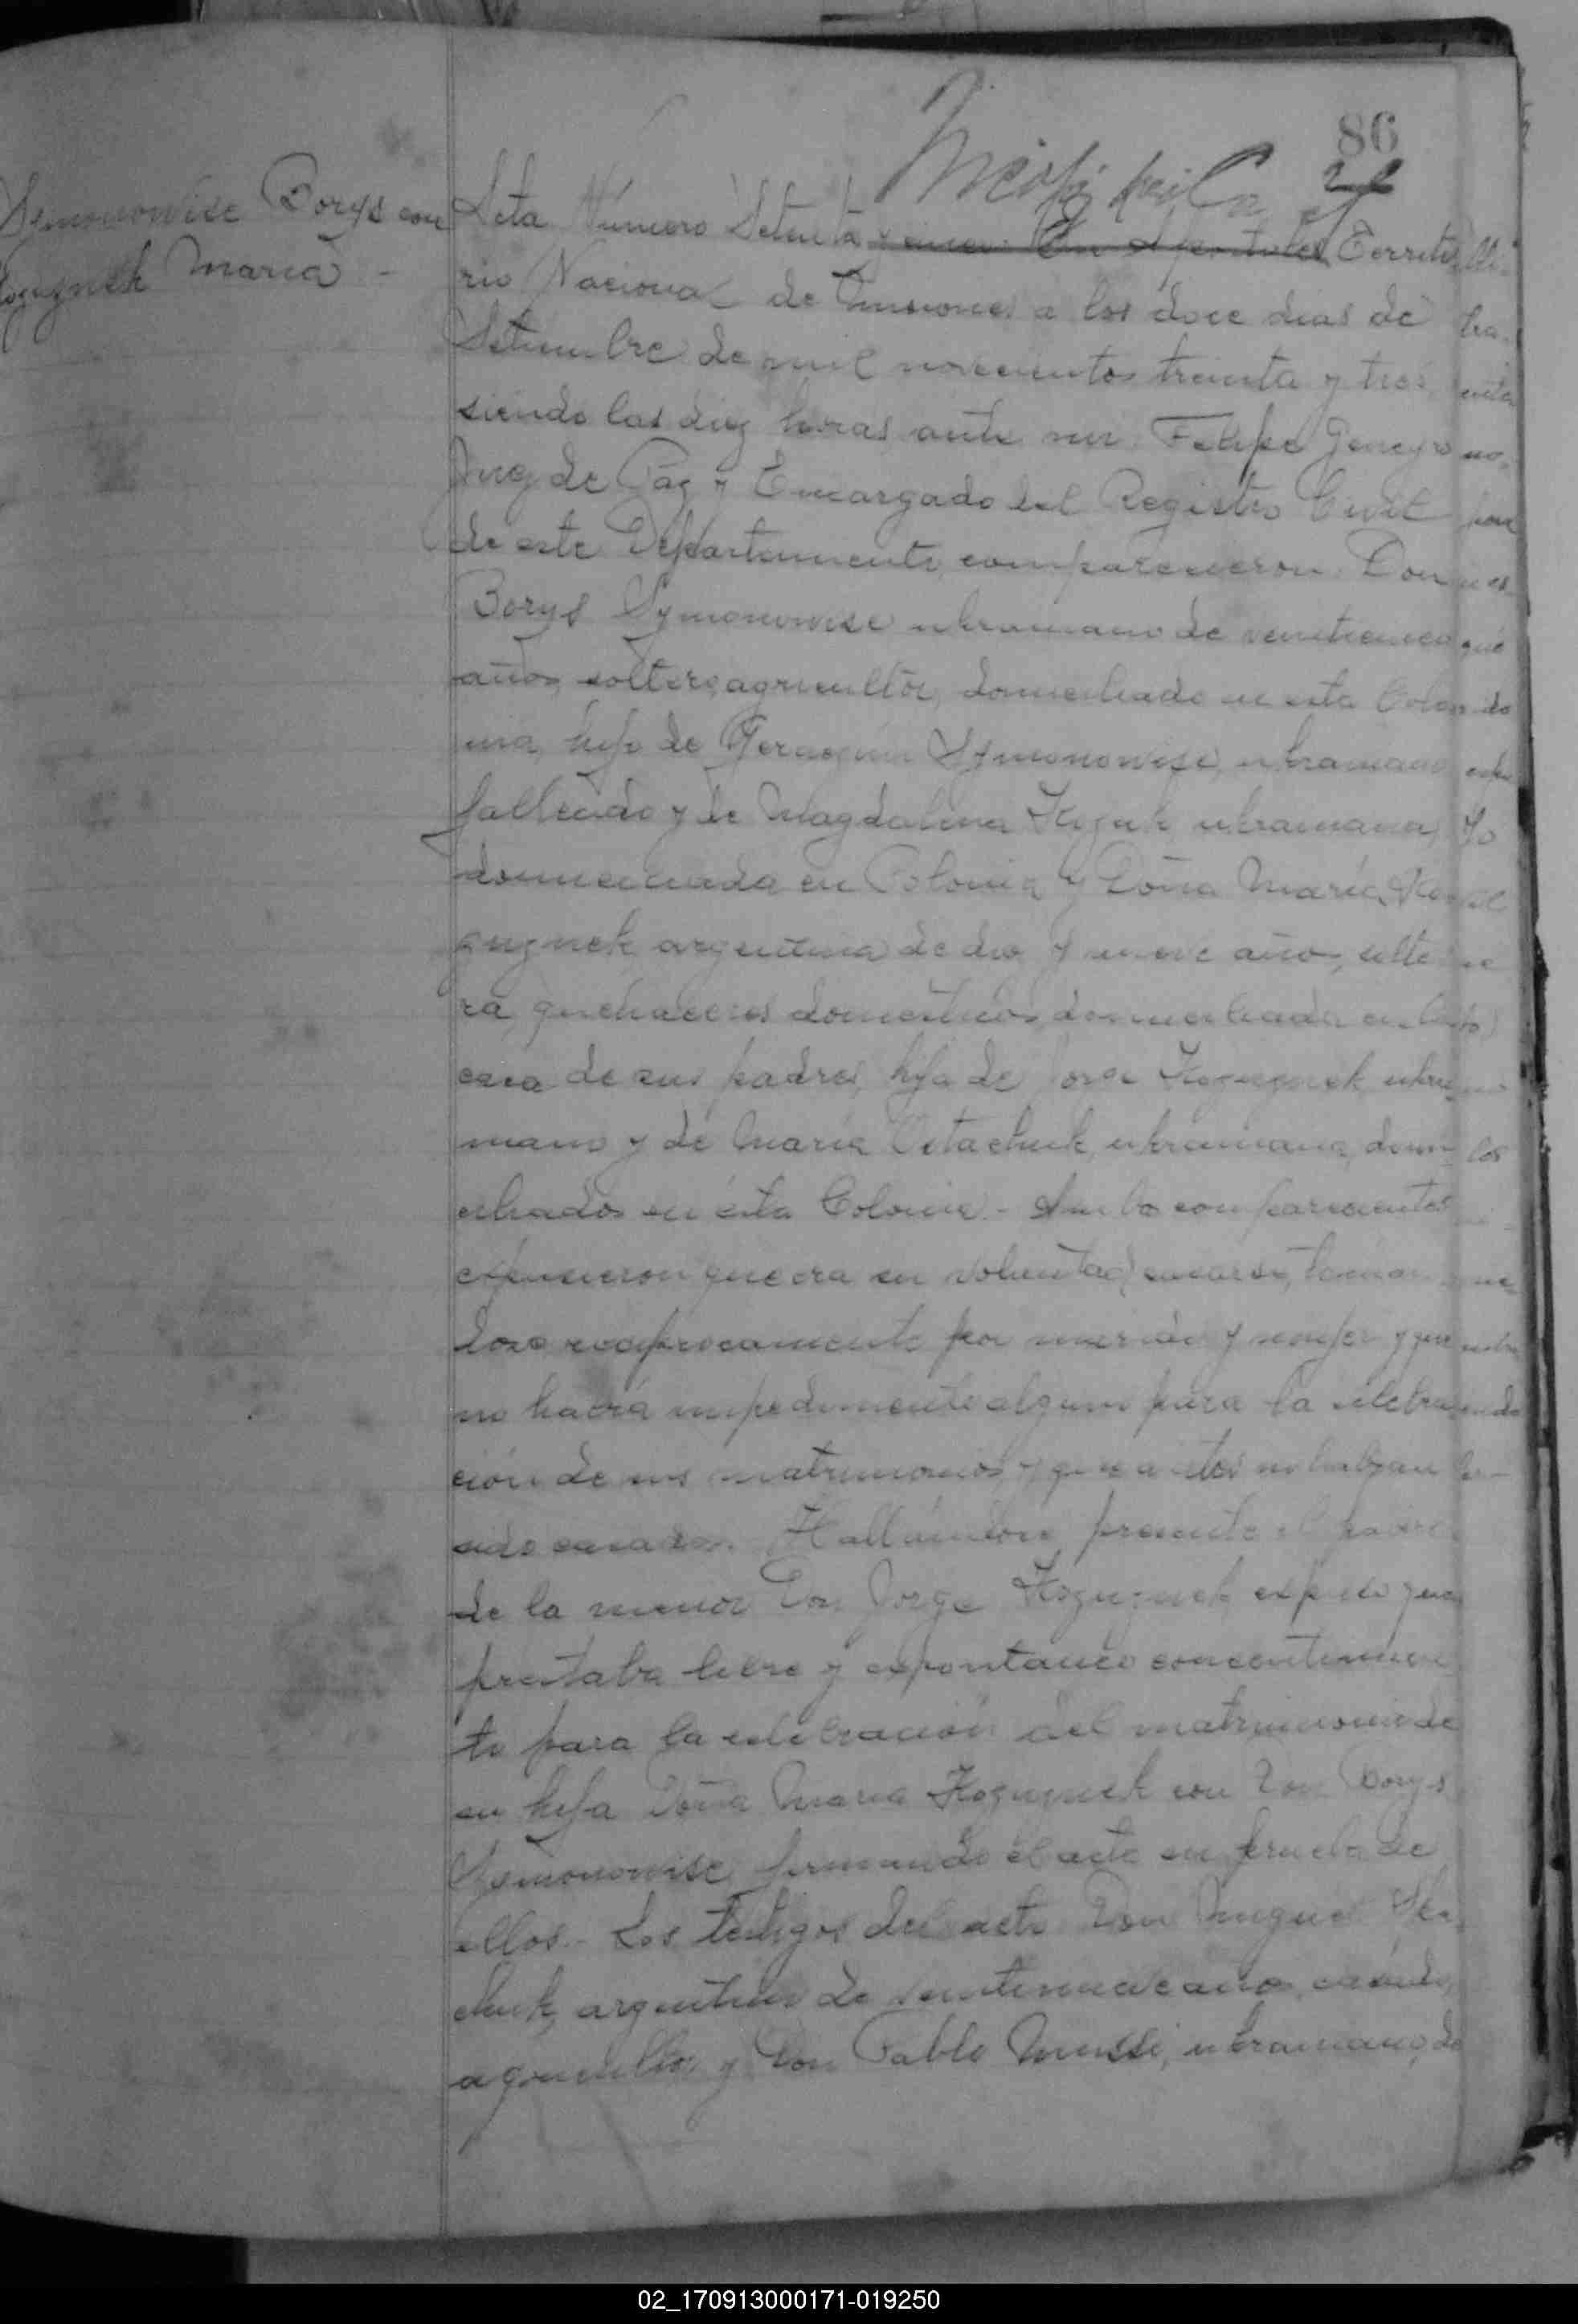 86
Symonowisc Borys con
María -
Acta Número Setenta y cinco En Apóstoles, Territo
rio Nacional de Misiones a los doce dias de
Setiembre de mil novecientos treinta y tres,
siendo las diez horas, ante mi Felipe
Juez de Paz y Encargado del Registro Civil
de este Departamento, comparecieron: Don
Borys Symonowisc ukraniano de veinticinco
años, soltero, agricultor, domiciliado en esta Colo
nia, hijo de Symonowisc, ukraniano
fallecido y de Magdalena Kozak, ukraniana,
domiciliada en Polonia y Doña María Ko
zuznek argentina de diez y nueve años, solte
ra, quehaceres domésticos, domiciliada en la
casa de sus padres, hija de Jorge Kozuznek, ukra
niano y de María Ostachuk, ukraniana, domi
ciliados en ésta Colonia.- Ambos comparecientes
expusieron que era su voluntad casarse, tomán
dose recíprocamente por marido y mujer y que
no había impedimento alguno para la celebra
ción de sus matrimonios, y que antes no habían
sido casados. Hallándose presente el padre
de la menor Don Jorge Kozuznek expuso que
prestaba libre y espontaneo consentimien
to para la celebración del matrimonio de
su hija Doña María Kozuznek con Don Borys
Symonowisc, firmando el acta en prueba de
ellos.- Los testigos del acto Don Miguel
chuk, argentino de veintinueve años, casado,
agricultor y Don Pablo ukraniano, de
02_170913000171-019250